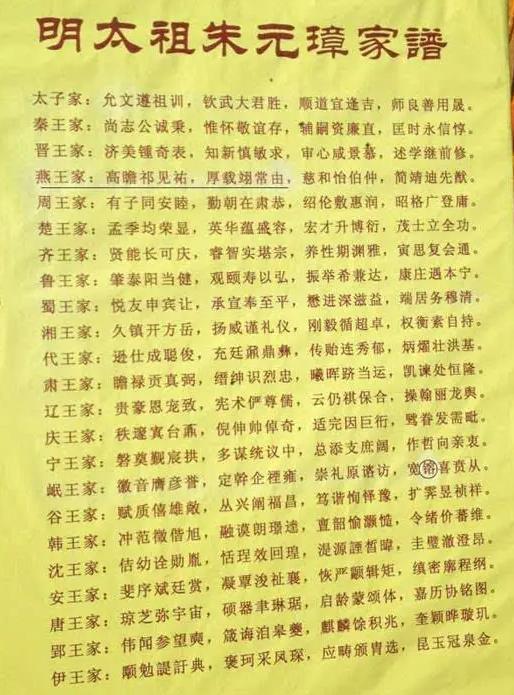 明太祖朱元璋家譜
太子家：允文遵祖训，钦武大君胜，顺道宜逢吉，师良善用晟。
秦王家：尚志公诚秉，惟怀敬谊存，辅嗣资廉直，匡时永信惇。
晋王家：济美锺奇表，知新慎敏求，审心咸景慕，述学继前修。
燕王家：高瞻祁见祐，厚载翊常由，慈和怡伯仲，简靖迪先猷。
周王家：有子同安睦，勤朝在肃恭，绍伦敷惠润，昭格广登庸。
楚王家：孟季均荣显，英华蕴盛容，宏才升博衍，茂士立全功。
齐王家：贤能长可庆，睿智实堪宗，养性期渊雅，寅思复会通。
鲁王家：肇泰阳当健，观颐寿以弘，振举希兼达，康庄遇本宁。
蜀王家：悦友申宾让，承宣奉至平，懋进深滋益，端居务穆清。
湘王家：久镇开方岳，扬威谨礼仪，刚毅循超卓，权衡素自持。
代王家：逊仕成聪俊，充廷鼐鼎彝，传贻连秀郁，炳燿壮洪基。
肃王家：瞻禄贡真弼，缙绅识烈忠，曦晖跻当运，凯谏处恒隆。
辽王家：贵豪恩宠致，宪术俨尊儒，云仍祺保合，操翰丽龙舆。
庆王家：秩邃寘台鼒，倪伸帅倬奇，适完因巨衍，骘眷发需毗。
宁王家：磐奠觐宸拱，多谋统议中，总添支庶阔，作哲向亲衷。
岷王家：徽音膺彦誉，定幹企禋雍，崇礼原谘访，宽镕喜贲从。
谷王家：赋质僖雄敞，丛兴阐福昌，笃谐恂怿豫，扩霁昱祯祥。
韩王家：冲范徵偕旭，融谟朗璟逵，亶韶愉灏慥，令绪价蕃维。
沈王家：佶幼诠勋胤，恬珵效回瑝，湜源諲晳暐，圭璧澈澄昂。
安王家：斐序斌廷赏，凝覃浚祉襄，恢严颛辑矩，缜密廓程纲。
唐王家：琼芝弥宇宙，硕器聿琳琚，启龄蒙颂体，嘉历协铭图。
郢王家：伟闻参望奭，箴诲洎皋夔，麒麟馀积兆，奎颖晔璇玑。
伊王家：颙勉諟訏典，褒珂采凤琛，应畴颁胄选，昆玉冠泉金。